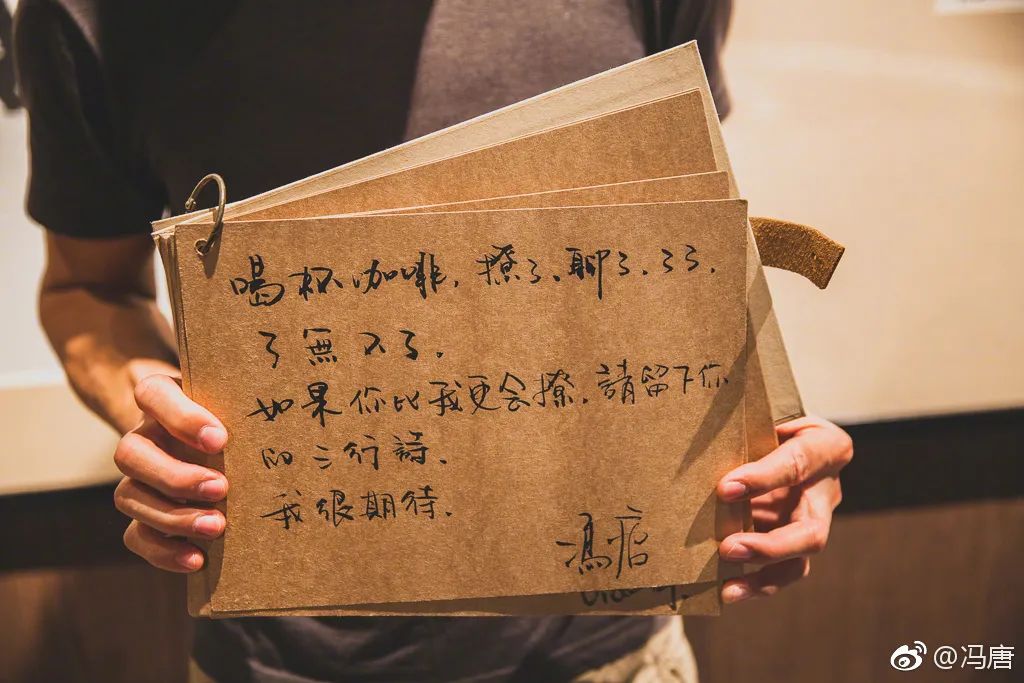 喝杯咖啡,撩了、聊了、了了,
了無不了。
如果你比我更会撩,請留下你
的三行詩。
我很期待。
馮唐
@冯唐